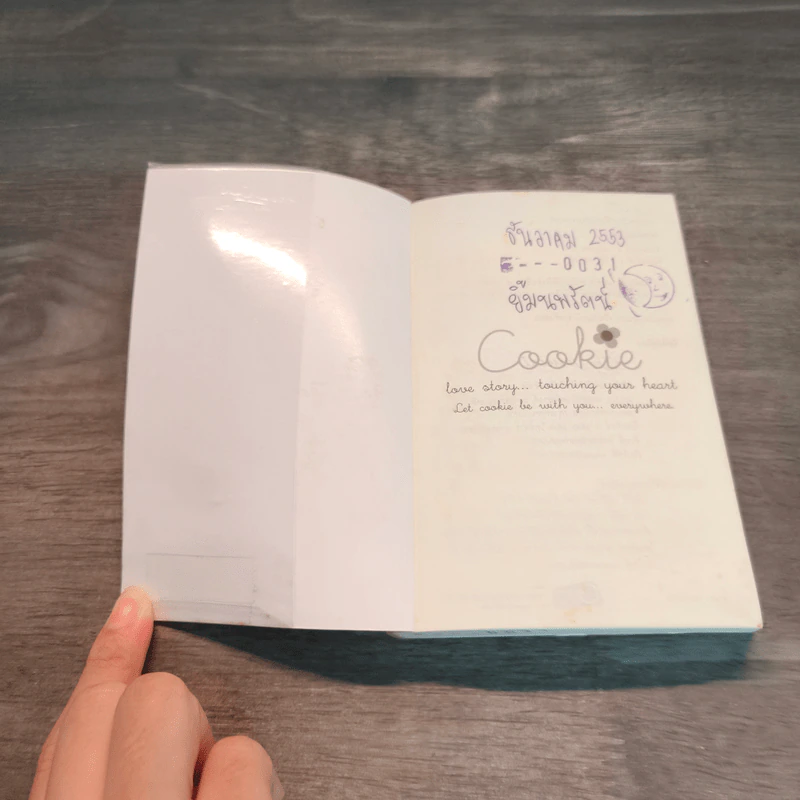 ธันวาคม 2553
E---0031
ยิ้มนพรัตน์
Cookie
love story... touching your heart
Let cookie be with you... everywhere.